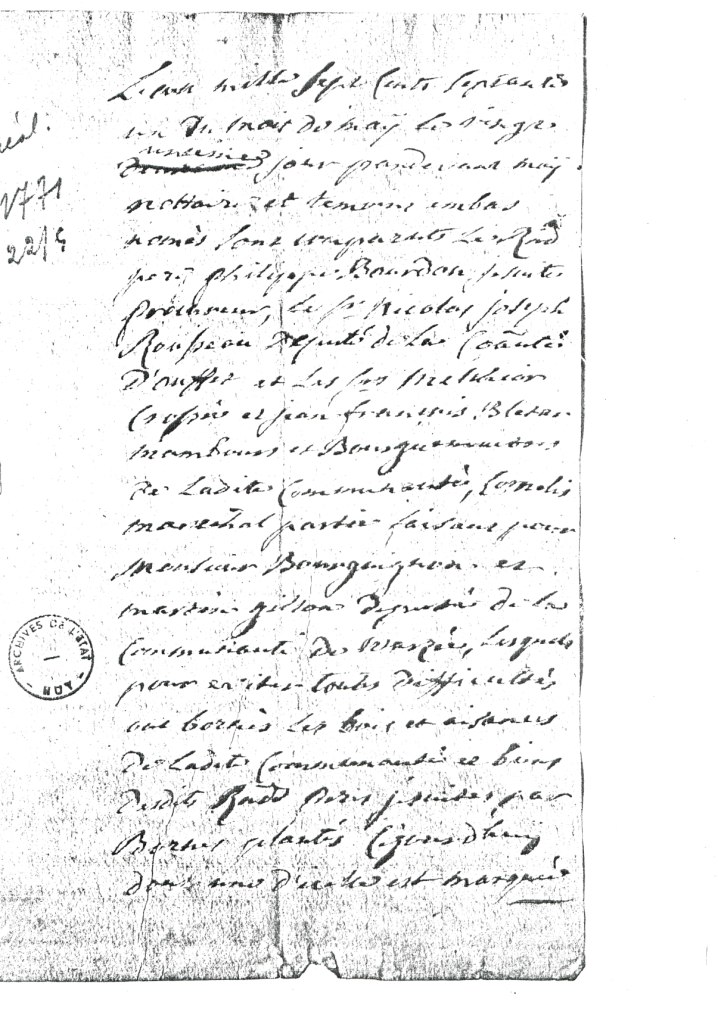 L'an mille sept Cents septante
un du mois de maÿ le vingt
unsieme
jour pardevant moÿ
nottaire et temoins embas
només sont comparuts Le Rnd
pere philippe Bourdon jesuite
procureur, le sr Nicolas joseph
Rousseau deputé de la Coãuté
D'ouffet et Les srs Melchior
et jean françois
mambours et Bourguemaitres
de Ladite Communauté, Cornelis
marechal partie faisant pour
Monsieur Bourguignon et
martin gilson deputés de la
Communauté de Warzée, Lesquels
pour eviter toutes difficultés
ont bornés les bois et aisances
de Ladite Communauté et biens
desdits Rnds peres jesuites par
Bornes plantés
dont une d'icelle est marquée
1771
22/5
ARCHIVES DE L'ETAT